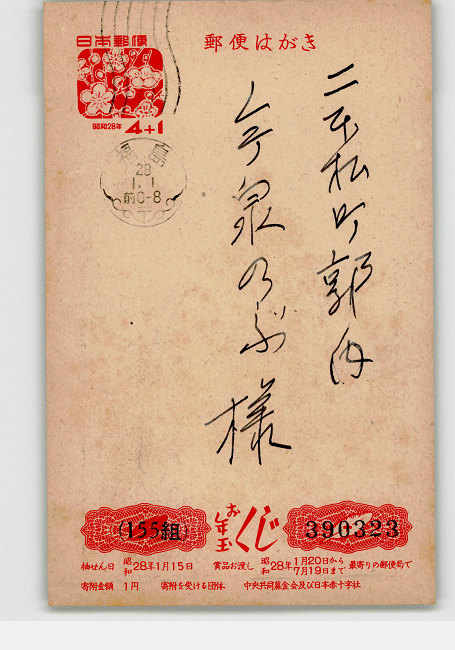 日本郵便
郵便はがき
昭和28年 4+1
福島
28
1.1
前0-8
二本松町郭内
今泉のぶ様
お年玉くじ
(155組)
390323
抽せん日 昭和28年1月15日 賞品お渡し 昭和28年1月20日から7月19日まで 最寄りの郵便局で
寄附金額 1円 寄附を受ける団体 中央共同募金会及び日本赤十字社